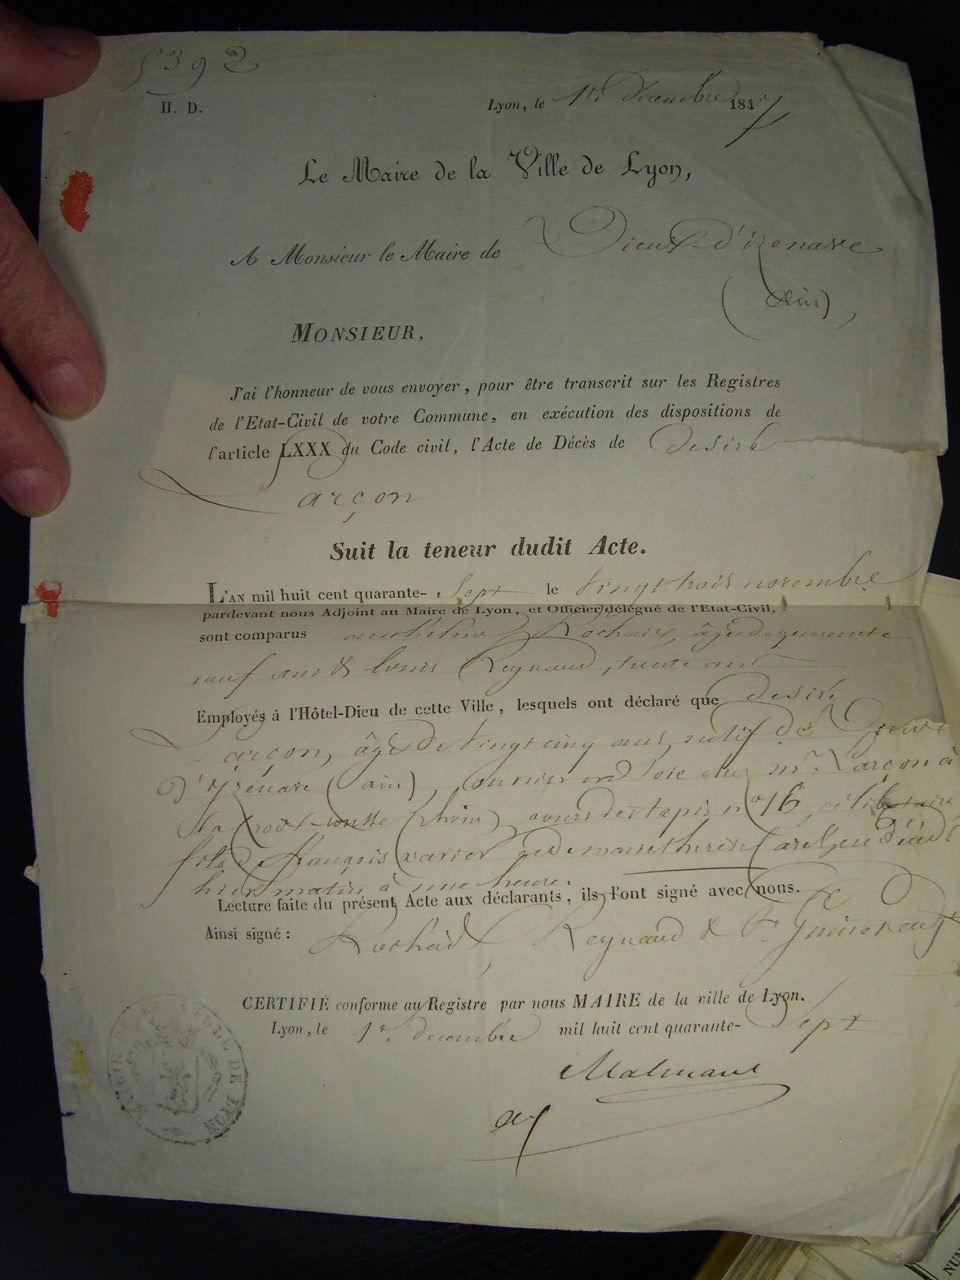 5392
H. D.
Lyon, le 1er Décembre 1847
Le Maire de la Ville de Lyon,
A Monsieur le Maire de Vieux-d'izenave
(ain),
MONSIEUR,
J'ai l'honneur de vous envoyer, pour être transcrit sur les Registres
de l'Etat-Civil de votre Commune, en exécution des dispositions de
l'article LXXX du Code civil, l'Acte de Décès de désiré
Larçon
Suit la teneur dudit Acte.
L'AN mil huit cent quarante- sept le vingt trois novembre
pardevant nous Adjoint au Maire de Lyon, et Officier délégué de l'Etat-Civil,
sont comparus anthelme Rochaix, âgé de quarante
neuf ans & Louis Reynaud, trente ans
Employés à l'Hôtel-Dieu de cette Ville, lesquels ont déclaré que désiré
Larçon, âgé de vingt cinq ans, natif de Vieux
D'Izénave (ain), ouvrier en soie chez mr. Larçon à
la Croix-rousse (rhône) cours des tapis no 16, célibataire
fils de françois xavier & de marie therèse décédé
hier matin à une heure.
Lecture faite du présent Acte aux déclarants, ils l'ont signé avec nous.
Ainsi signé : Rochaix, Reynaud &
CERTIFIÉ conforme au Registre par nous MAIRE de la ville de Lyon.
Lyon, le 1er décembre mil huit cent quarante- sept
MAIRIE DE LA VILLE DE LYON